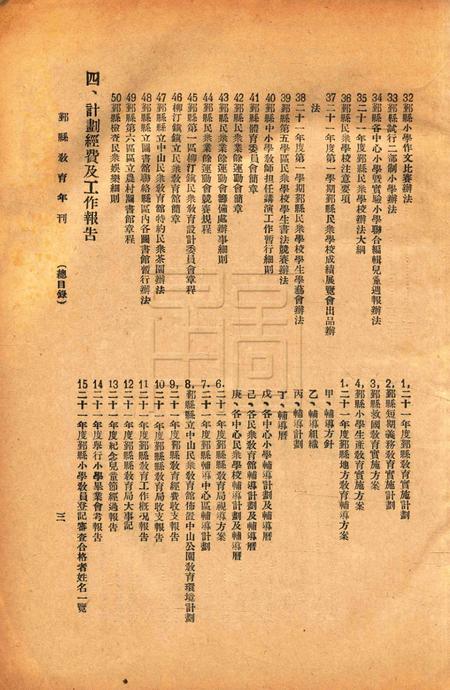 32鄞縣小學作文比賽辦法
33鄞縣試行二部制小學辦法
34鄞縣各中心小學暨實驗小學聯合編輯兒童週報辦法
35二十一年度鄞縣民衆學校辦法大綱
36鄞縣民衆學校注意要項
37二十一年度第一學期鄞縣民衆學校成績展覽會出品辦法
38二十一年度第一學期鄞縣民衆學校學生學藝會辦法
39鄞縣第五學區民衆學校學生書法競賽辦法
40鄞縣中小學敎師担任講演工作暫行細則
41鄞縣體育委員會簡章
42鄞縣民衆業餘運動會簡章
43鄞縣民衆業餘運動會籌備處辦事細則
44鄞縣民衆業餘運動會競賽規程
45鄞縣第一區柳汀鎭民衆敎育設計委員會章程
46柳汀鎭鎭立民衆敎育館簡章
47鄞縣縣立中山民衆敎育館特約民衆茶園辦法
48鄞縣縣立圖書館聯絡縣區內各圖書館暫行辦法
49鄞縣第六區區立農村圖書館章程
50鄞縣檢查民衆娛樂細則
四、計劃經費及工作報告
1,二十一年度鄞縣敎育實施計劃
2,鄞縣短期義務敎育實施計劃
3,鄞縣救國敎育實施方案
4,鄞縣小學生產敎育實施方案
1.二十一年度鄞縣地方敎育輔導方案
甲、輔導方針
乙、輔導組織
丙、輔導計劃
丁、輔導曆
戊、各中心小學輔導計劃及輔導曆
己、各民衆敎育館輔導計劃及輔導曆
庚、各中心民衆學校輔導計劃及輔導曆
6.二十一年度鄞縣敎育局視導方案
7.二十一年度鄞縣輔導中心區輔導計劃
8,鄞縣縣立中山民衆敎育館佈置中山公園敎育環境計劃
9,二十一年度鄞縣敎育經費收支報告
10二十一年度鄞縣敎育局收支報告
11二十一年度敎育工作槪況報告
12二十一年度鄞縣敎育局大事記
13二十一年度紀念兒童節經過報告
14二十一年度舉行小學畢業會考報告
15二十一年度鄞縣小學敎員登記審查合格者姓名一覽
鄞縣敎育年刊
(總目錄)
三